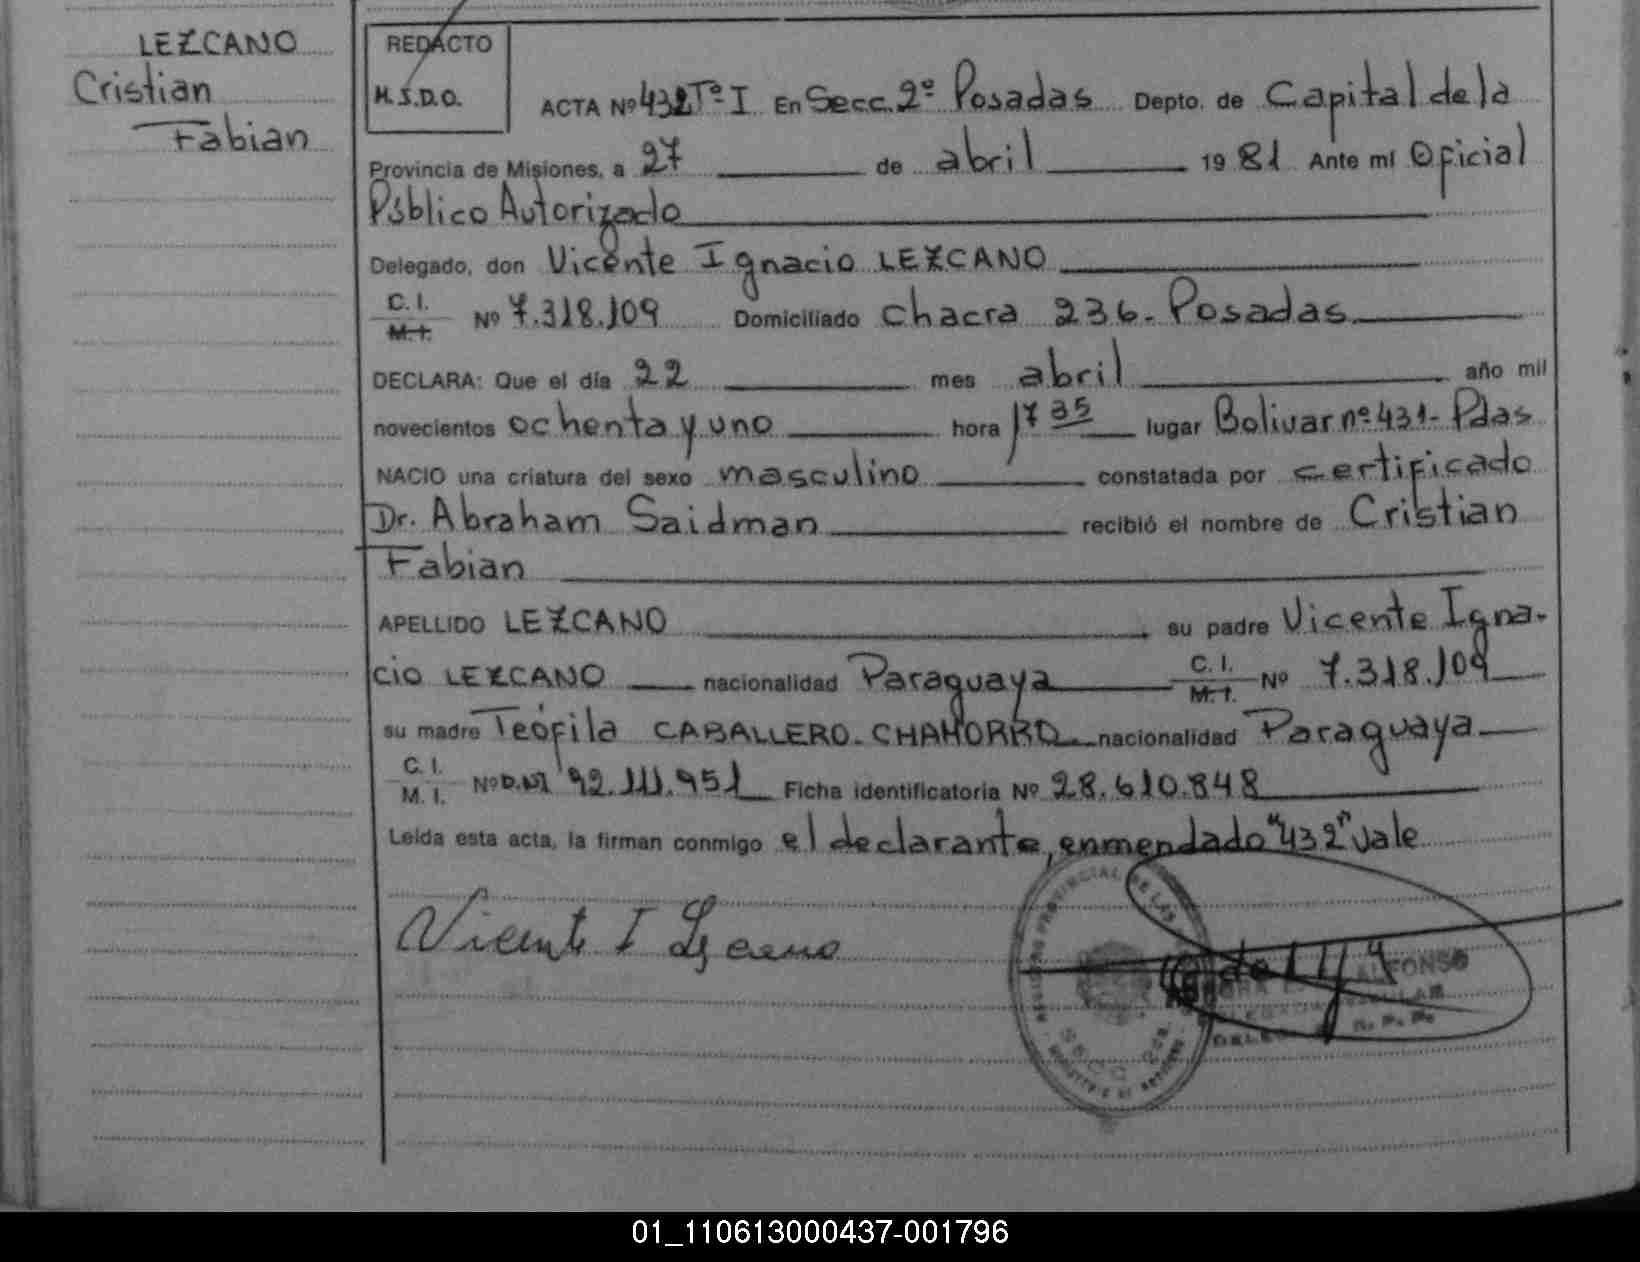 LEZCANO
Cristian
Fabian
REDACTO
M.S.D.O.
ACTA Nº 432 Tº I En Secc. 2º Posadas Depto. de Capital de la
Provincia de Misiones, a 27 de abril 19 81 Ante mí Oficial
Público Autorizado
Delegado, don Vicente Ignacio LEZCANO
C. I.
M. I.
Nº 7.318.109 Domiciliado chacra 236. Posadas
DECLARA: Que el día 22 mes abril año mil
novecientos ochenta y uno hora 17 35 lugar Bolivar nº 431- Pdas
NACIO una criatura del sexo masculino constatada por certificado
Dr. Abraham Saidman recibió el nombre de Cristian
Fabian
APELLIDO LEZCANO su padre Vicente Igna-
cio LEZCANO nacionalidad Paraguaya C. I. M. I. Nº 7.318.109
su madre Teófila CABALLERO-CHAMORRO nacionalidad Paraguaya
C. I.
M. I.
Nº D.NI 92.111.951 Ficha identificatoria Nº 28.610.848
Leída esta acta, la firman conmigo el declarante, enmendado "432" vale
Vicente I Lezcano
REGISTRO PROVINCIAL DE LAS
SECC. 2da.
ALFONSO
TITULAR
R. P. P.
01_110613000437-001796